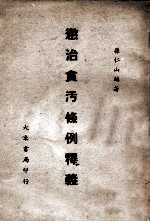 孫仁山編著
懲治貪污條例釋義
大東書局印行